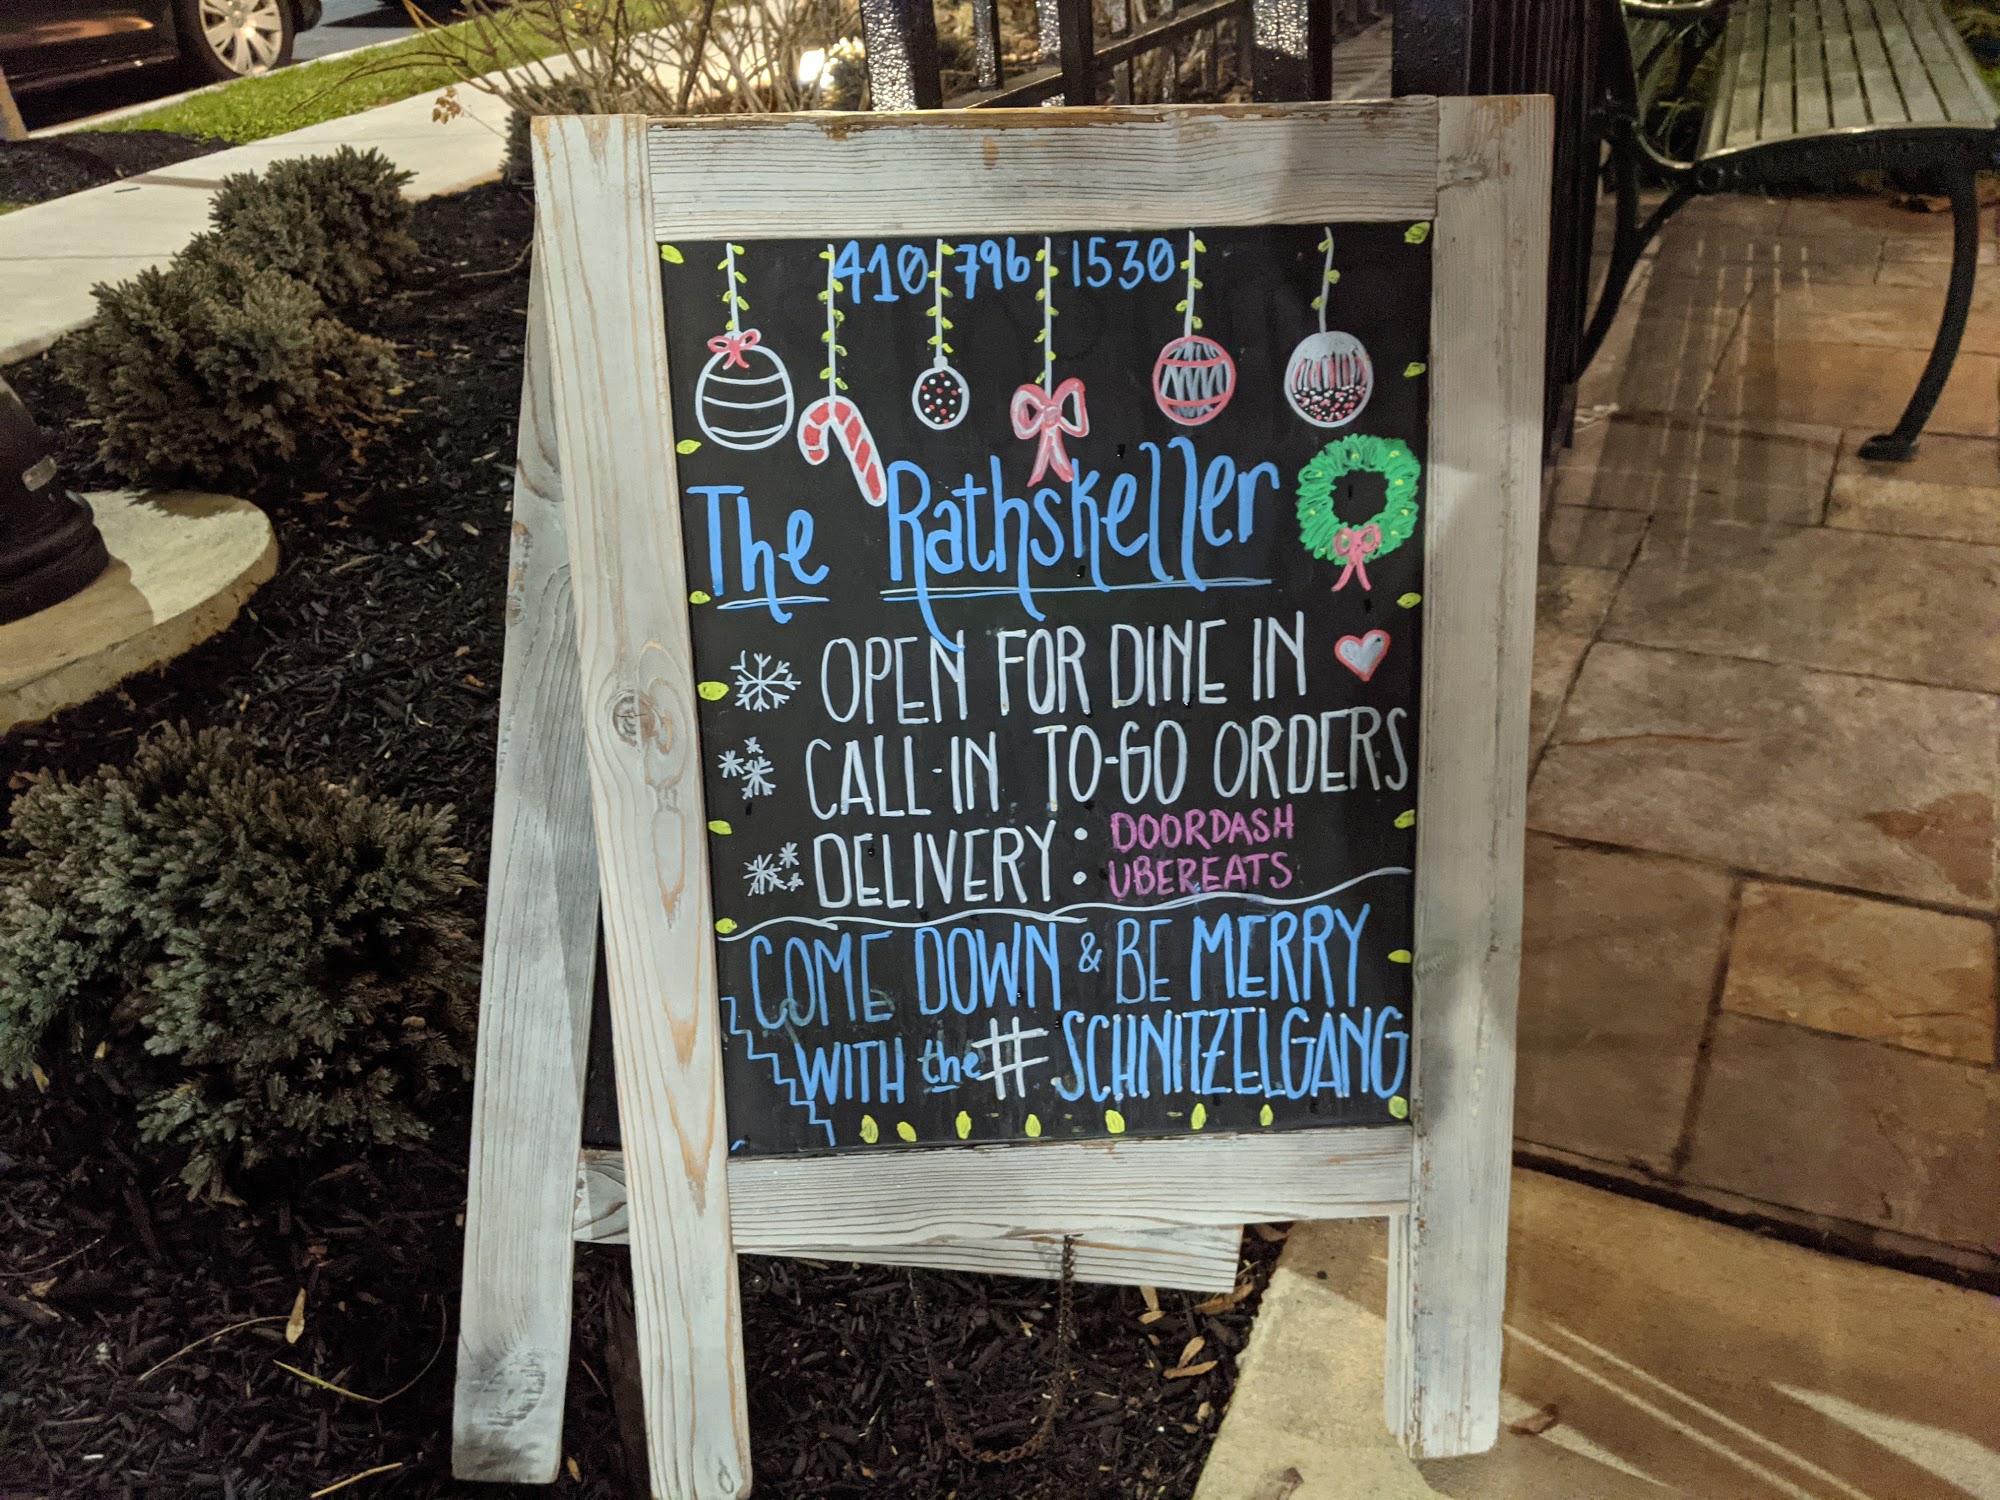 410 796 1530
The Rathskeller
OPEN FOR DINE IN
CALL-IN TO-GO ORDERS
DELIVERY: DOORDASH
UBEREATS
COME DOWN & BE MERRY
WITH the # SCHNITZELGANG